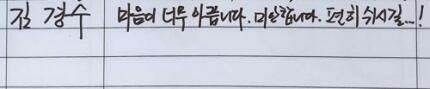 김 경수 마음이 너무 아픕니다. 미안합니다. 편히 쉬시길...!